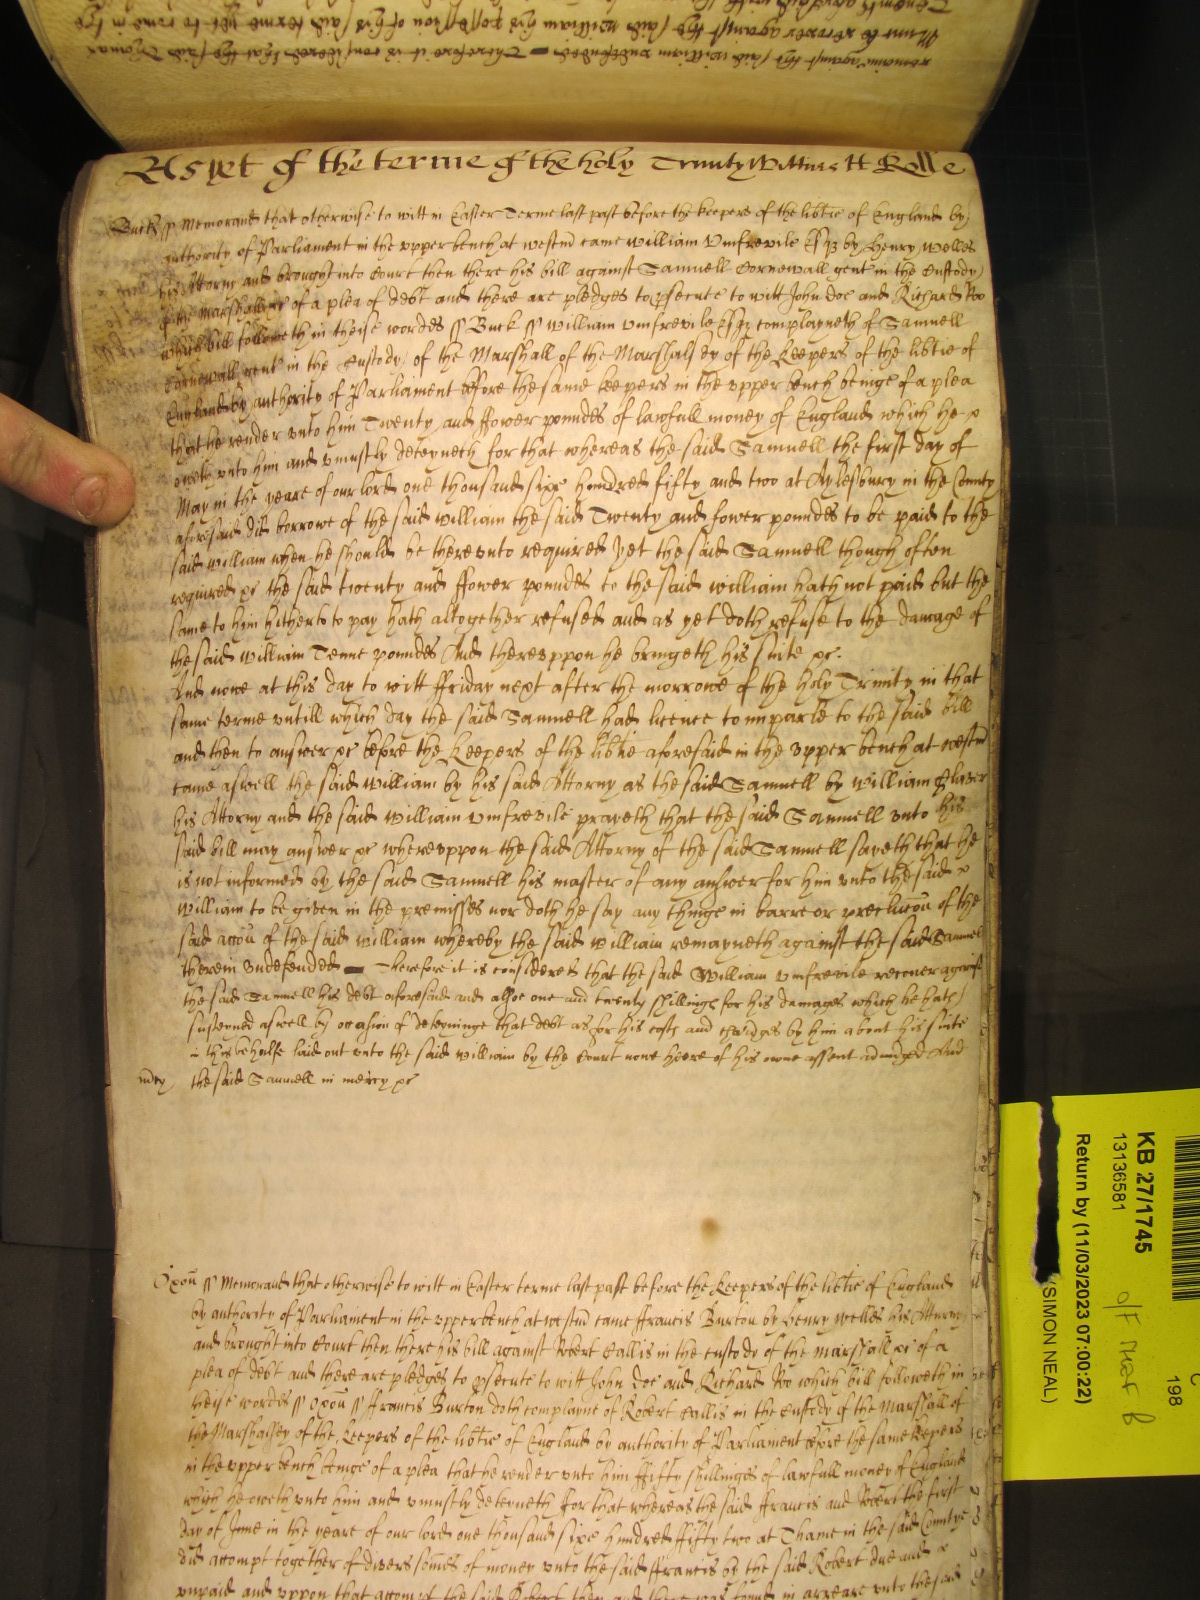 As yet of the terme of the holy Trinity Wittnis H Rolle
Buck ss Memorand that otherwise to witt in Easter Terme last past before the keepers of the libtie of England by
authority of Parliament in the upper bench at westm came William Umfrevile Esqz by Henry Welles
his Attorny and brought into Court then there his bill against Samuell Cornewall gent in the Custody
of the Marshall xc of a plea of debt and there are pledges to psecute to witt John Doe and Richard Roo
which bill followeth in theise wordes ss Buck ss William Umfrevile Esqz complayneth of Samuell
Cornewall gent in the Custody of the Marshall of the Marshalsey of the Keepers of the libtie of
England by authority of Parliament before the same keepers in the upper bench beinge of a plea
that he render unto him Twenty and ffower poundes of lawfull money of England which he
oweth unto him and uniustly deteyneth for that whereas the said Samuell the first day of
May in the yeare of our lord one thousand sixe hundred fifty and two at Aylesbury in the County
aforesaid did borrowe of the said William the said Twenty and fower poundes to be paid to the
said William when he should be thereunto required yet the said Samuell though often
required xc the said twenty and ffower poundes to the said William hath not paid but the
same to him hitherto to pay hath altogether refused and as yet doth refuse to the damage of
the said William Tenne poundes And thereuppon he bringeth his suite xc.
And nowe at this day to witt ffriday next after the morrowe of the holy Trinity in that
same terme untill which day the said Samuell had licence to imparle to the said bill
and then to answer xc before the Keepers of the libtie aforesaid in the upper bench at westm
came aswell the said William by his said Attorny as the said Samuell by William Glover
his Attorny and the said William Umfrevile prayeth that the said Samuell unto his
said bill may answer xc whereuppon the said Attorny of the said Samuell sayeth that he
is not informed by the said Samuell his master of any answer for him unto the said
William to be given in the premisses nor doth he say any thinge in barre or preclucon of the
said accon of the said William whereby the said William remayneth against the said Samuell
therein undefended Therefore it is considered that the said William Umfrevile recover against
the said Samuell his debt aforesaid and alsoe one and twenty shillings for his damages which he hath
susteyned aswell by occasion of deteyninge that debt as for his costs and chardges by him about his suite
in this behalfe laid out unto the said William by the Court nowe heere of his owne assent adiudged And
mcy the said Samuell in mercy xc
Oxon ss Memorand that otherwise to witt in Easter terme last past before the Keepers of the libtie of England
by authority of Parliament in the upper bench at westm came ffrancis Burton by Henry Welles his Attorny
and brought into Court then there his bill against Robert Callis in the custody of the marshall xc of a
plea of debt and there are pledges to psecute to witt John Doe and Richard Roo which bill followeth in
theise wordes ss Oxon ss ffrancis Burton doth complayne of Robert Callis in the Custody of the Marshall of
the Marshalsey of the Keepers of the libtie of England by authority of Parliament before the same keepers
in the upper bench beinge of a plea that he render unto him ffifty shillinges of lawfull money of England
which he oweth unto him and uniustly deteyneth for that whereas the said ffrancis and Robert the first
day of June in the yeare of our lord one thousand sixe hundred ffifty two at Thame in the said County
did accompt together of divers somes of money unto the said ffrancis by the said Robert due and
unpaid and uppon that accom the said Robert then and there was found in arreare unto the said
KB 27/1745
13136581
Return by (11/03/2023 07:00:22)
(SIMON NEAL)
198